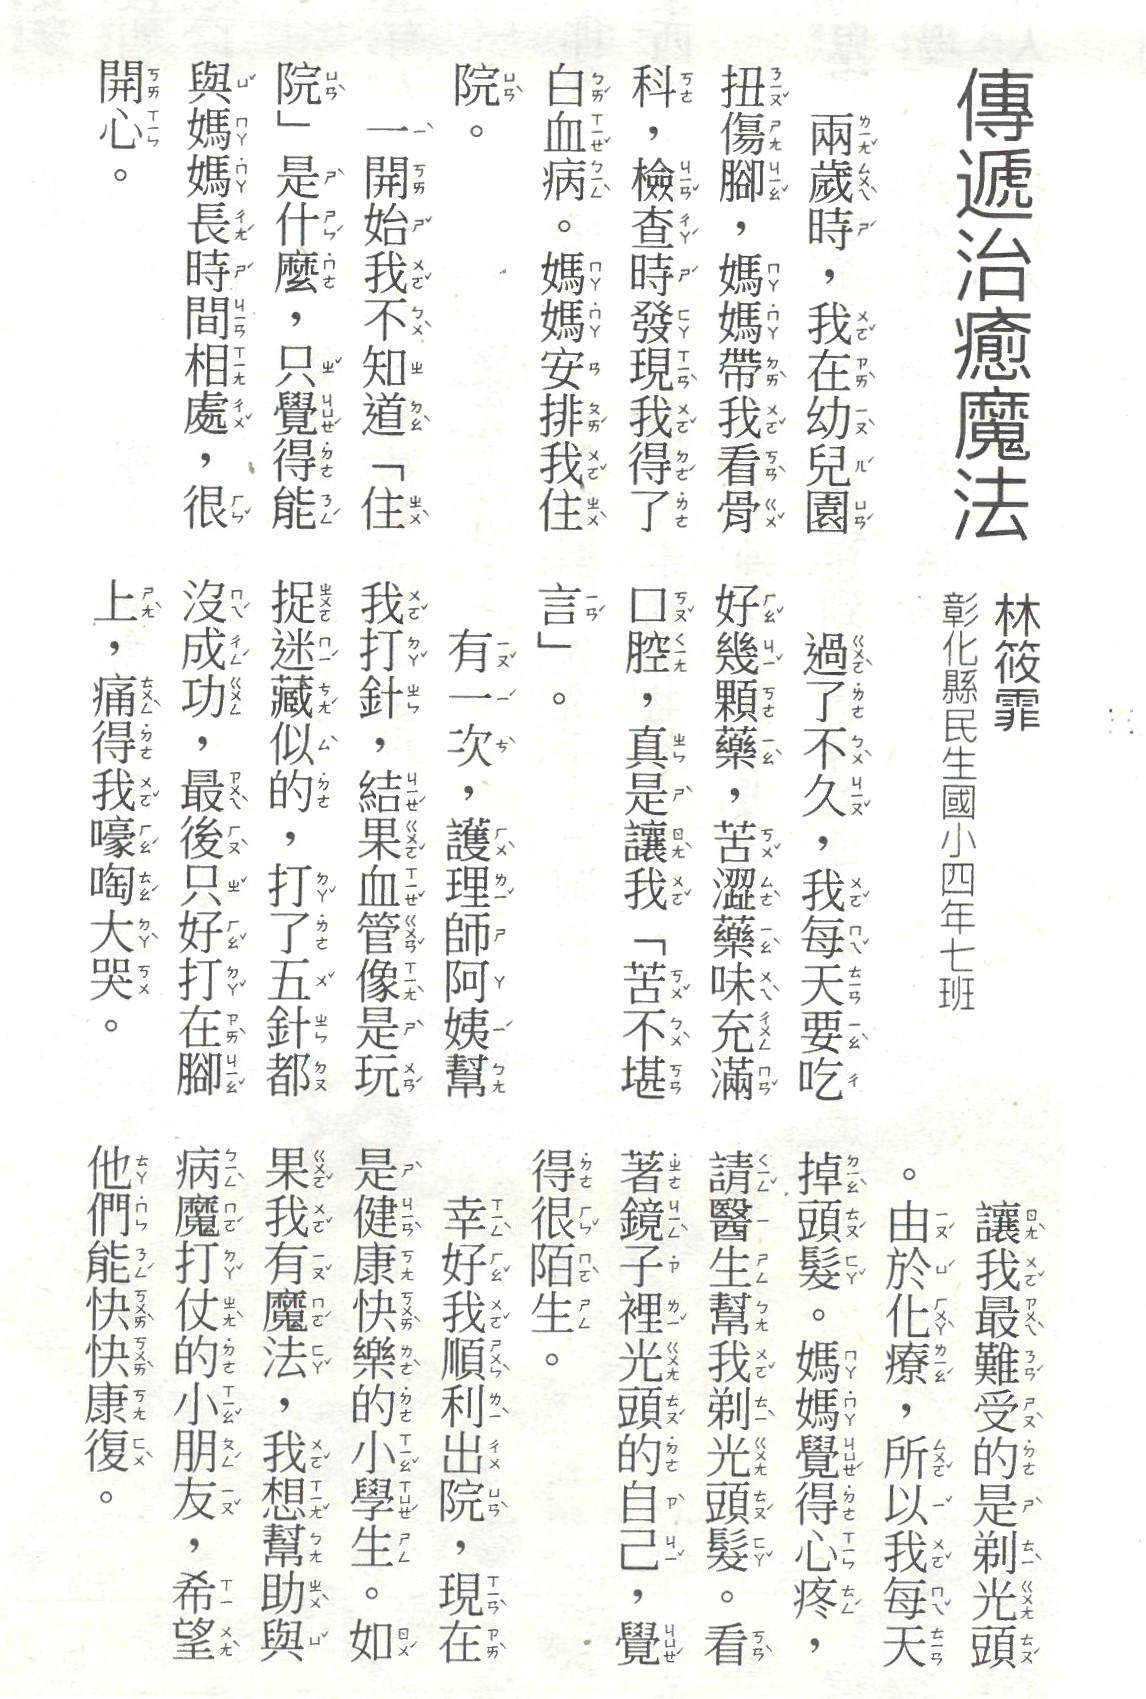 傳遞治癒魔法
林筱霏
彰化縣民生國小四年七班
兩歲時，我在幼兒園
扭傷腳，媽媽帶我看骨
科，檢查時發現我得了
白血病。媽媽安排我住
院。
一開始我不知道「住
院」是什麼，只覺得能
與媽媽長時間相處，很
開心。
過了不久，我每天要吃
好幾顆藥，苦澀藥味充滿
口腔，真是讓我「苦不堪
言」。
有一次，護理師阿姨幫
我打針，結果血管像是玩
捉迷藏似的，打了五針都
沒成功，最後只好打在腳
上，痛得我嚎啕大哭。
讓我最難受的是剃光頭
。由於化療，所以我每天
掉頭髮。媽媽覺得心疼，
請醫生幫我剃光頭髮。看
著鏡子裡光頭的自己，覺
得很陌生。
幸好我順利出院，現在
是健康快樂的小學生。如
果我有魔法，我想幫助與
病魔打仗的小朋友，希望
他們能快快康復。